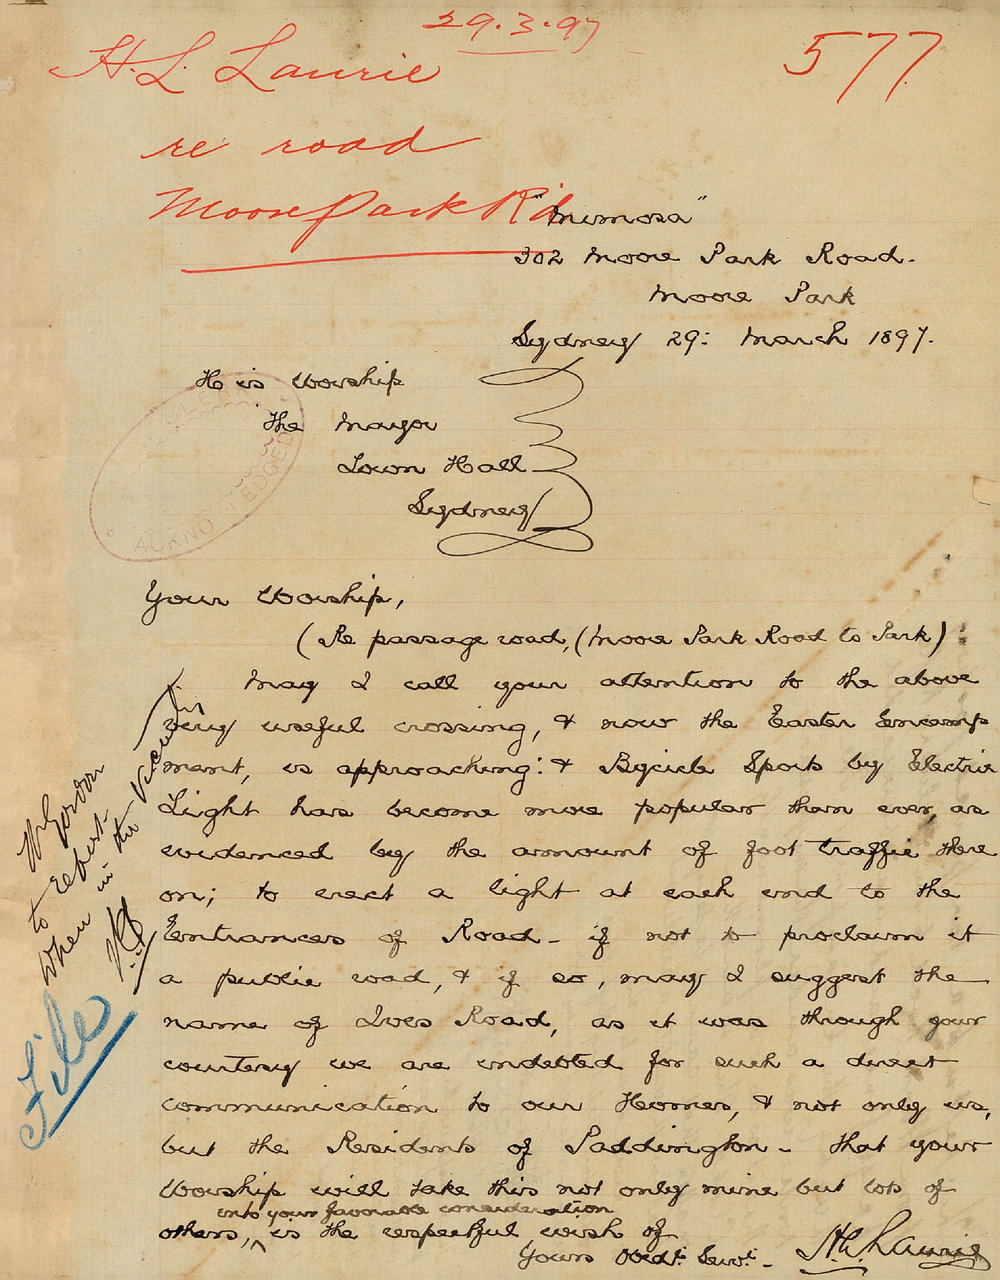 29.3.97
H. L. Laurie
577
re road
Moore Park Rd
"Mimosa"
302 Moore Park Road.
Moore Park
Sydney 29: March 1897.
His Worship
The Mayor
Town Hall
Sydney
CLERK
ACKNOWLEDGED
Your Worship,
(Re passage road, (Moore Park Road to Park) :
May I call your attention to the above
very useful crossing, & now the Easter Encamp
ment, is approaching: & Bycicle Sports by Electric
Light has become more popular than ever, as
evidenced by the amount of foot traffic there
on; to erect a light at each end to the
Entrances of Road - if not to proclaim it
a public road, & if so, may I suggest the
name of Ives Road, as it was through your
courtesy we are indebted for such a direct
communication to our Homes, & not only us,
but the Residents of Paddington - that your
Worship will take this not only mine but lots of
into your favorable consideration
others, ^ is the respectful wish of
Yours Obedt. Servt. -
H. L. Laurie
Mr Gordon
to report
when in the vicinity
File